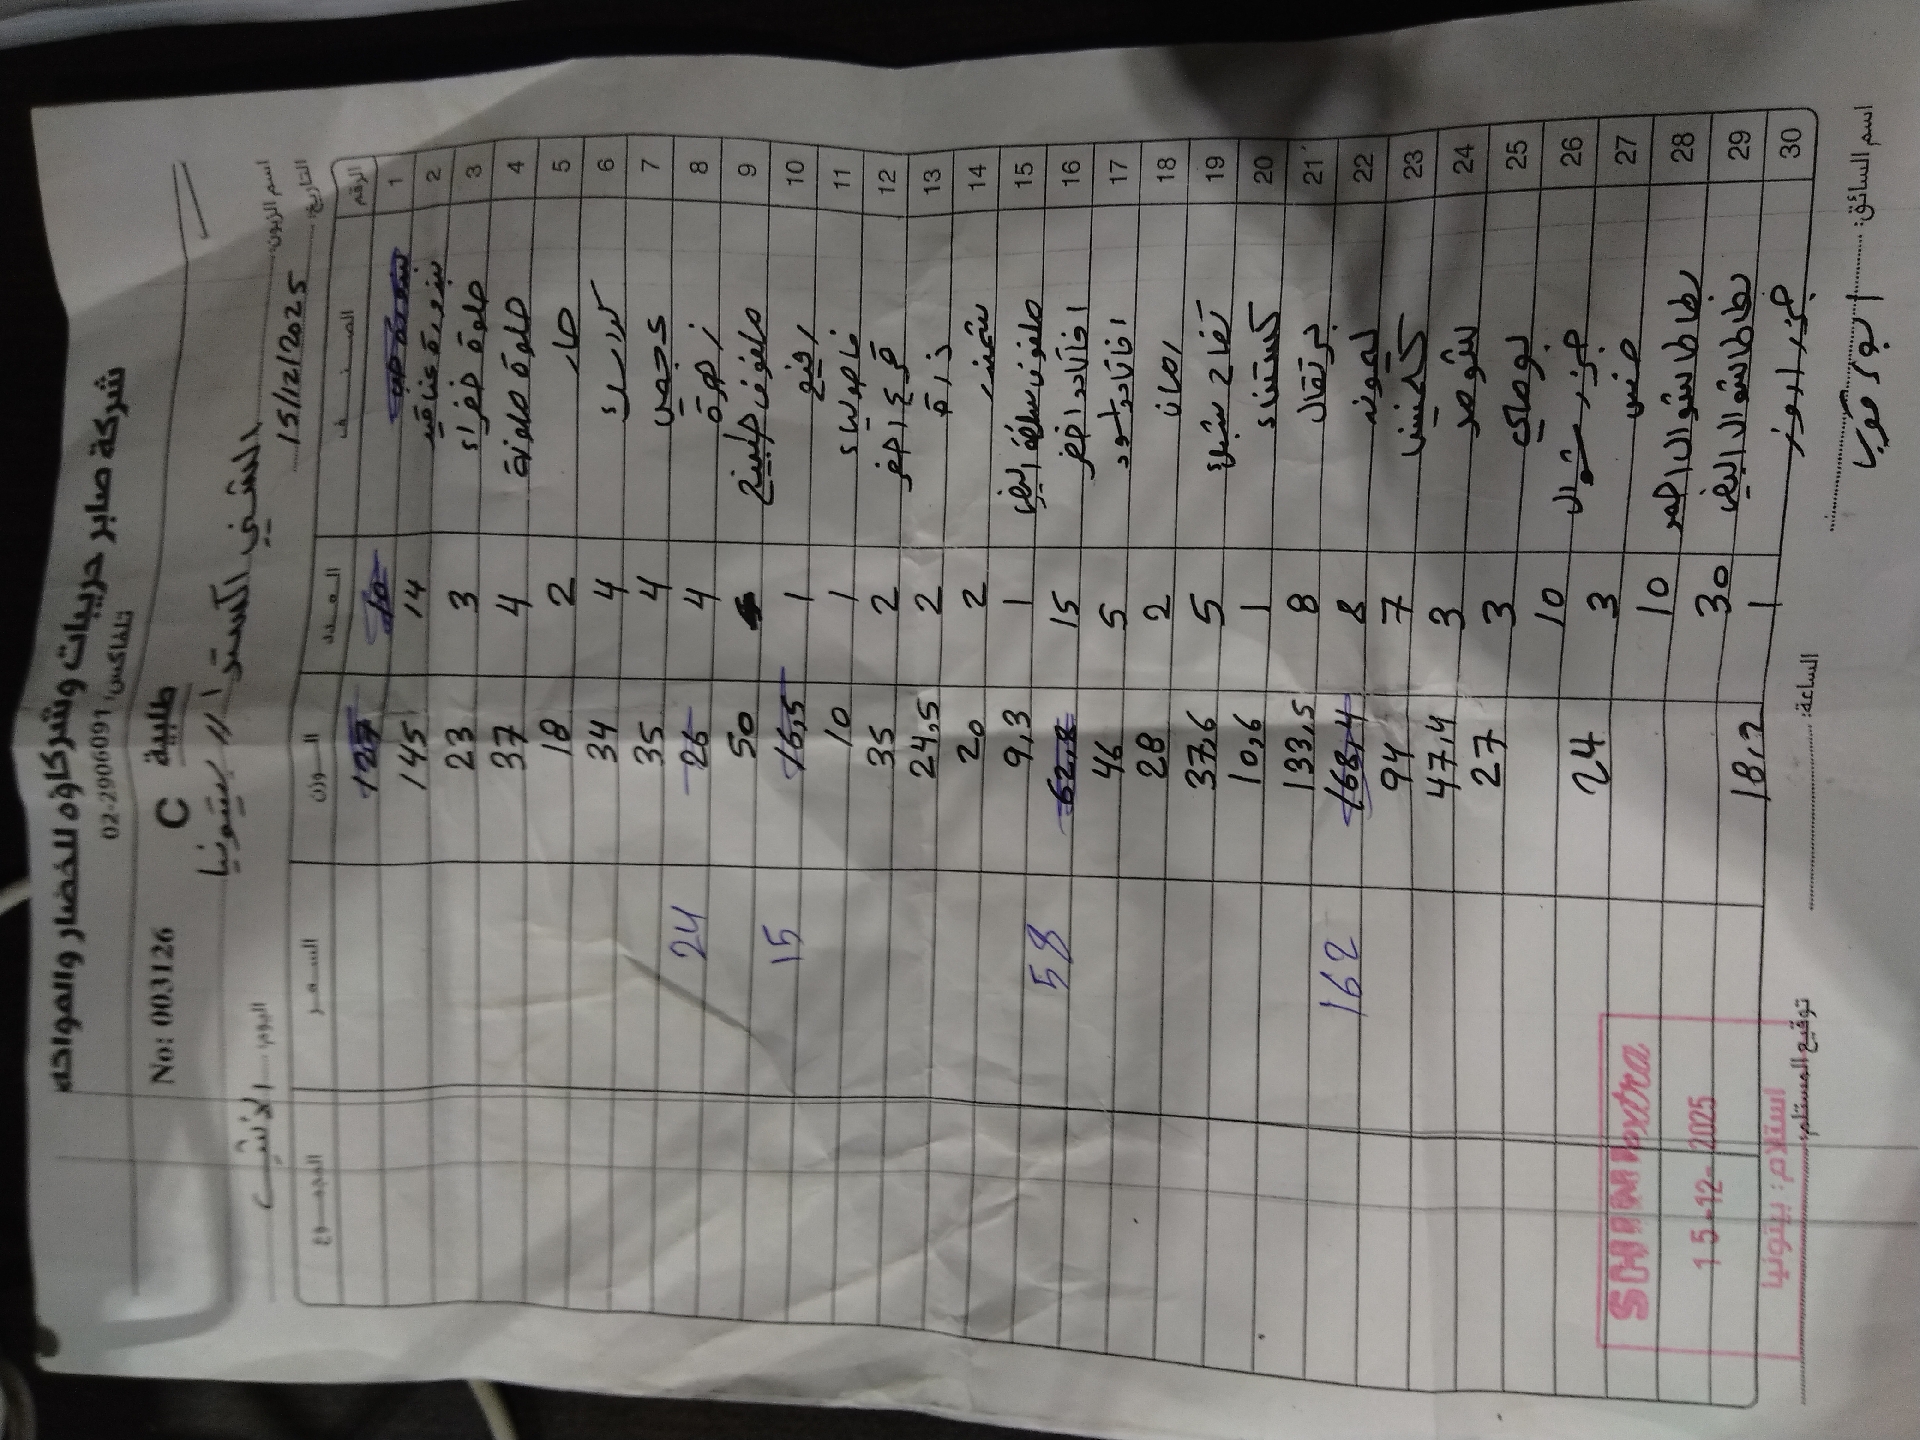 شركة صابر حربيات وشركاؤه للخضار والمواد
تلفاكس: 02-2906091
No: 003126 C طلبية
اسم الزبون: الشني اكسترا // بيتونيا
التاريخ: 15/12/2025 اليوم: الاثنين
الرقم الصنف العدد الوزن السعر المجموع
1 بندورة 10 127
2 بندورة عناقيد 14 145
3 حلوة خضراء 3 23
4 حلوة ملونة 4 37
5 حار 2 18
6 4 34
7 4 35
8 زهرة 4 26 24
9 ملفوف طبيخ 50
10 1 16,5 15
11 فاصولياء 1 10
12 قرع اخضر 2 35
13 ذرة 2 24,5
14 شمندر 2 20
15 ملفوف سلطة ابيض 1 9,3
16 15 62,8 58
17 5 46
18 رمان 2 28
19 تفاح سكري 5 37,6
20 كستناء 1 10,6
21 برتقال 8 133,5
22 ليمون 8 168,4 162
23 7 94
24 شومر 3 47,4
25 بوملي 3 27
26 جزر شوال 10
27 خس 3 24
28 بطاطا شوال احمر 10
29 بطاطا شوال ابيض 30
30 جزر ابوز 1 18,2
اسم السائق: ابو يعقوب الساعة: توقيع المستلم:
extra
15-12-2025
استلام: بيتونيا